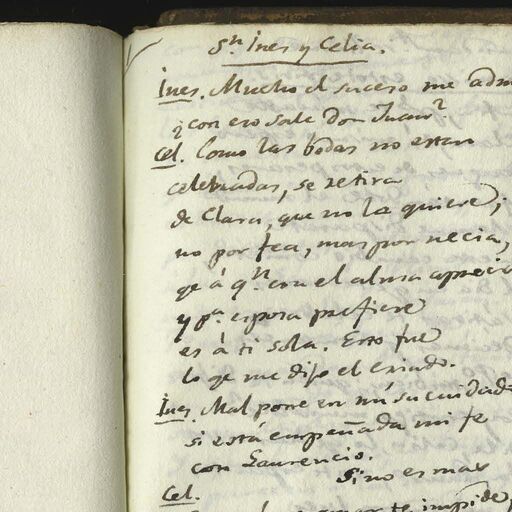 Sn Ines y Celia.
Ines. Mucho el suceso me adm
q con eso sale Don Juan?
Cel. Como las bodas no estan
celebradas, se retira
de Clara, que no la quiere;
no por fea, mas por necia,
qe á qn con el alma aprecia
y pa. esposa prefiere
es á ti sola. Esto fue
lo qe me dijo el criado.
Ines. Mal pone en mi su cuidado
si está empeñada mi fe
con Laurencio.
Si no es mas
Cel.
te impide,